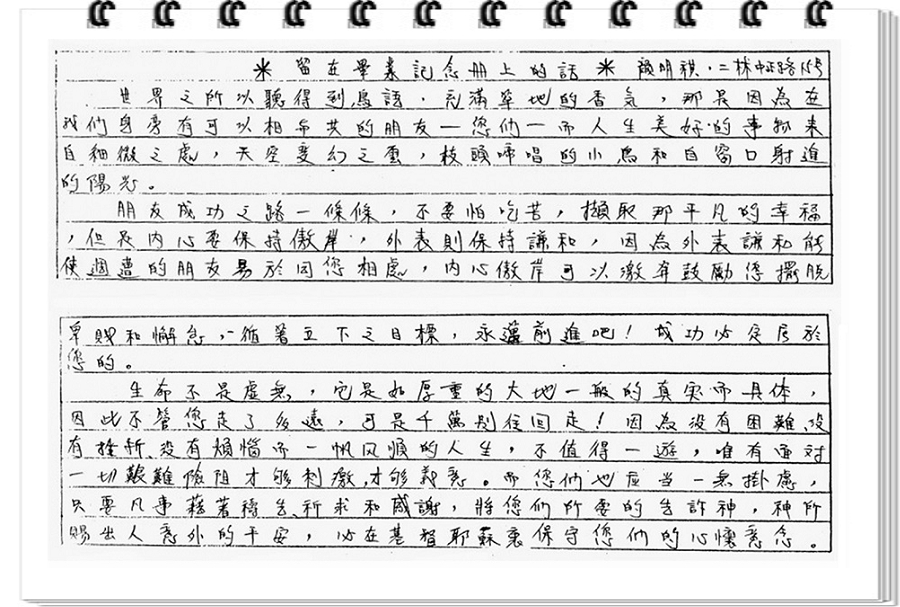 ＊ 留在畢業記念册上的話 ＊ 顏明祺．二林中正路155号
世界之所以聽得到鳥語，充滿草地的香氣，那是因為在
我們身旁有可以相和共的朋友－您們－而人生美好的事物来
自細微之處，天空变幻之雲，枝頭啼唱的小鳥和自窗口射進
的陽光。
朋友成功之路一條條，不要怕吃苦，擷取那平凡的幸福
，但是内心要保持傲岸，外表則保持謙和，因為外表謙和能
使週遭的朋友易於同您相處，内心傲岸可以激奔鼓勵您擺脱
卑賤和懈怠，循著立下之目標，永邁前進吧！成功必定居於
您的。
生命不是虚無，它是如厚重的大地一般的真实而具体，
因此不管您走了多遠，可是千萬别往回走！因為没有困難没
有挫折没有煩惱而一帆风順的人生，不值得一遊，唯有面对
一切艱難險阻才够刺激，才够義意。而您們也应当一無掛慮，
只要凡事藉著禱告，祈求和感謝，將您們所要的告訴神，神所
賜出人意外的平安，必在基督耶蘇裏保守您們的心懷意念。